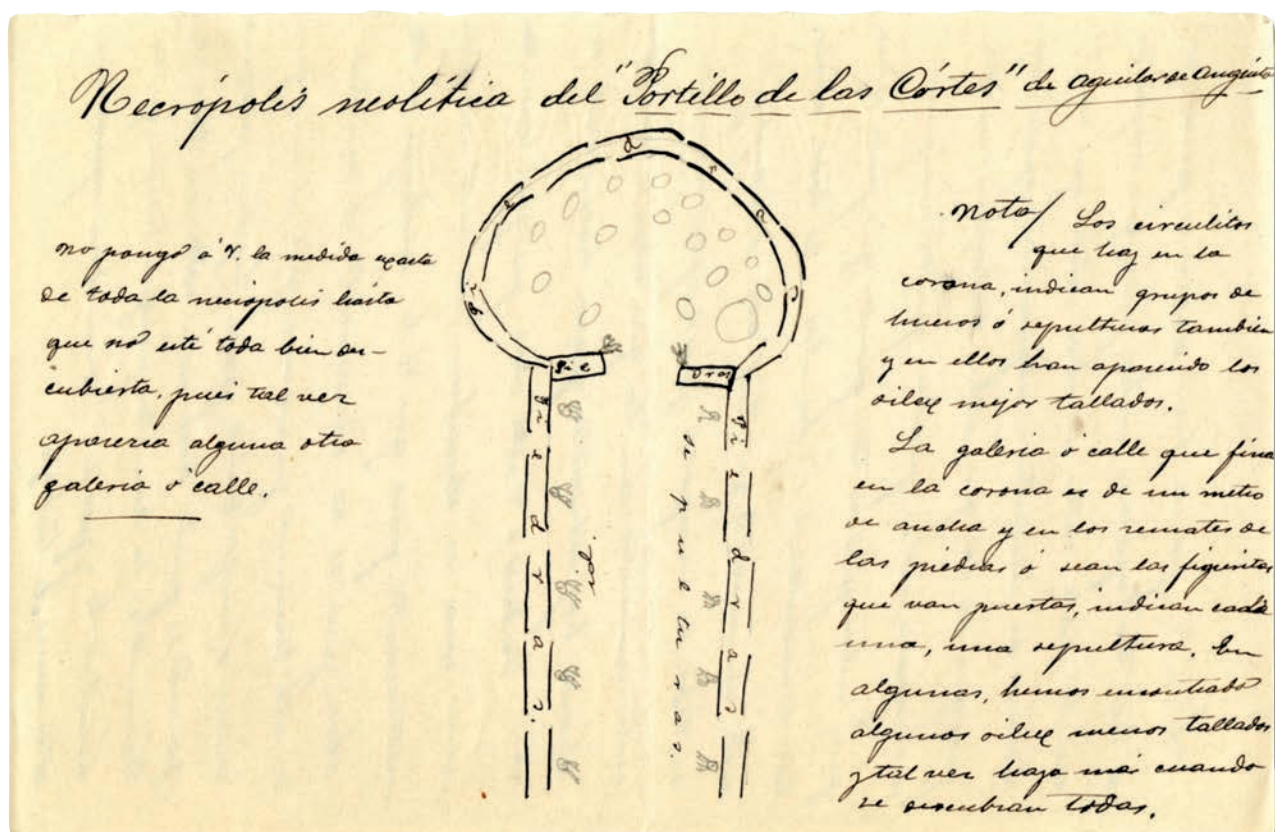 Necrópolis neolítica del "Portillo de las Córtes" de aguilar de anguita
no pongo á V. la medida exacta
de toda la necropolis hasta
que no esté toda bien des-
cubierta, pues tal vez
aparezca alguna otra
galeria ó calle.
Piedras
Pie dras
Piedras.
sepulturas.
Piedras
nota/ Los circulitos
que hay en la
corona, indican grupos de
huesos ó sepulturas tambien
y en ellos han aparecido los
silex mejor tallados.
La galeria ó calle que fina
en la corona es de un metro
de ancha y en los remates de
las piedras ó sean las figuritas
que van puestas, indican cada
una, una sepultura. En
algunas, hemos encontrado
algunos silex menos tallados
y tal vez haya más cuando
se descubran todas.